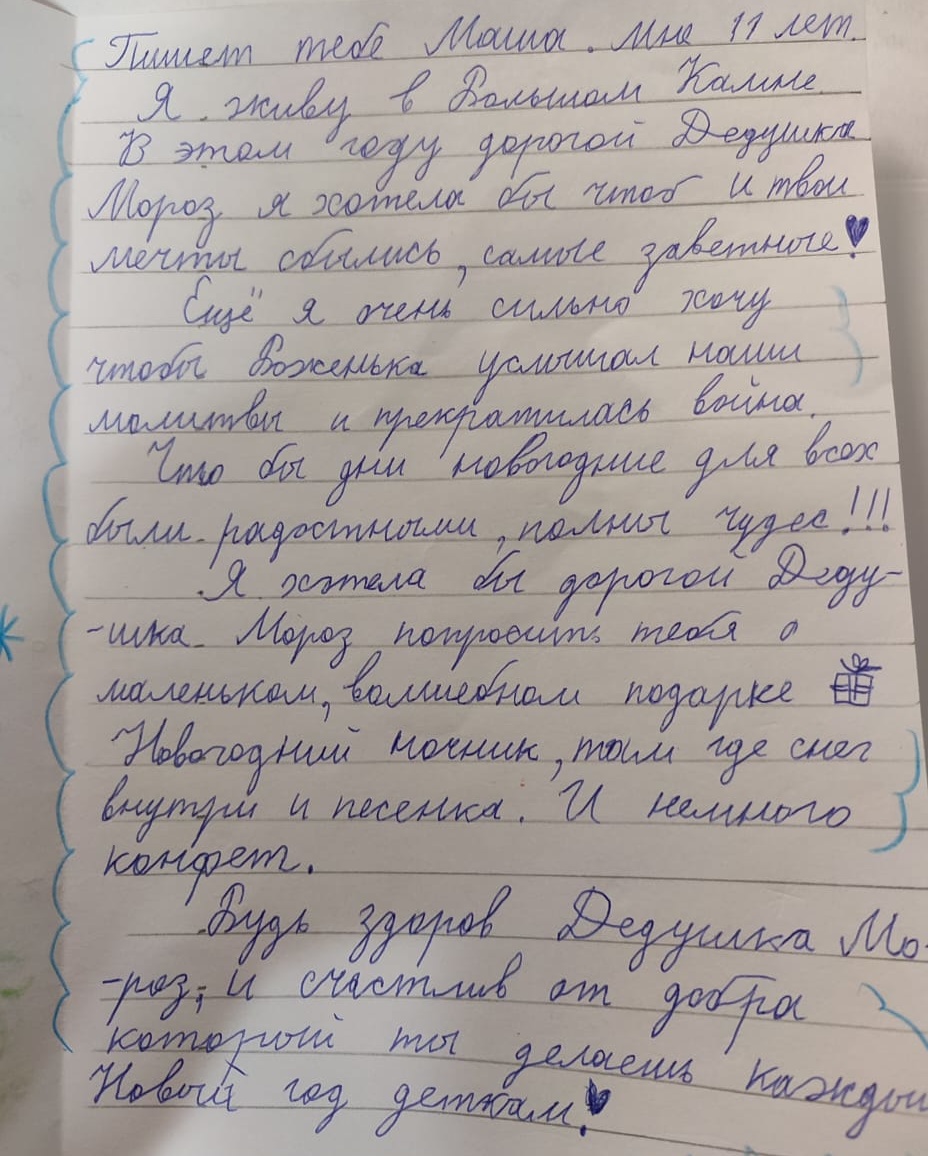 Пишет тебе Маша. Мне 11 лет.
Я живу в Большом Камне
В этом году дорогой Дедушка
Мороз я хотела бы чтоб и твои
мечты сбылись, самые заветные!
Ещё я очень сильно хочу
чтобы Боженька услышал наши
молитвы и прекратилась война.
Что бы дни новогодние для всех
были радостными, полны чудес!!!
Я хотела бы дорогой Деду-
-шка Мороз попросить тебя о
маленьком, волшебном подарке
Новогодний ночник, там где снег
внутри и песенка. И немного
конфет.
Будь здоров Дедушка Мо-
-роз, и счастлив от добра
который ты делаешь каждый
Новый год деткам!